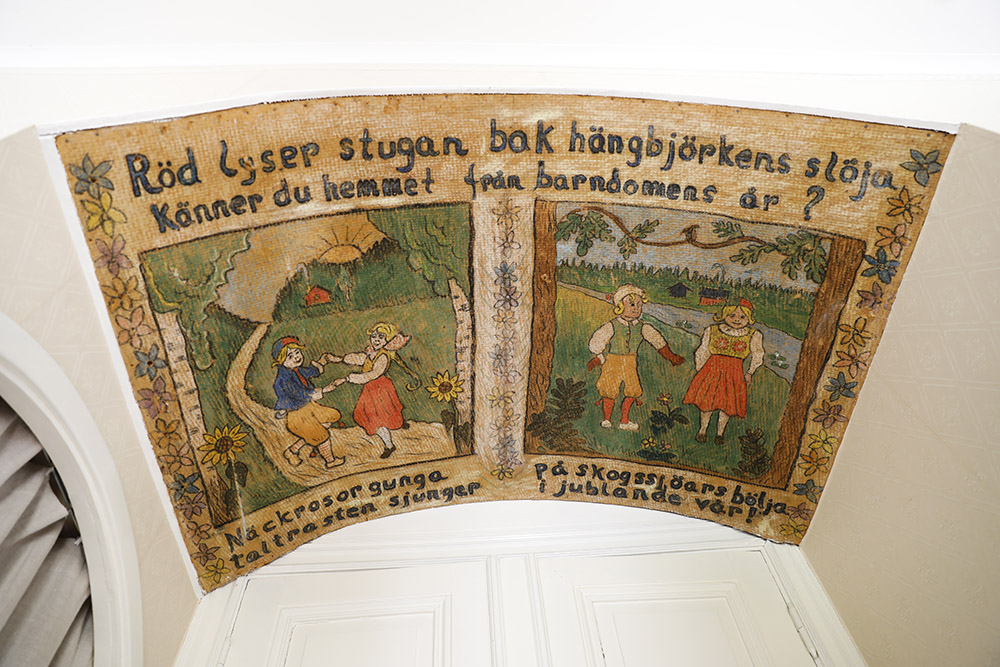 Röd lyser stugan bak hängbjörkens slöja
Känner du hemmet från barndomens år ?
Näckrosor gunga på skogssjöars bölja
taltrasten sjunger i jublande vår!